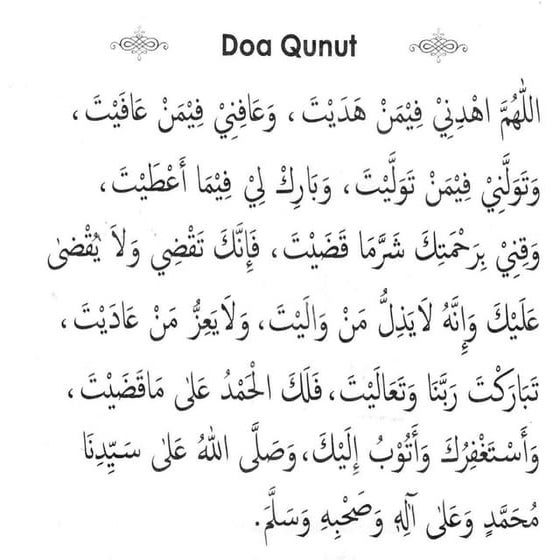 Doa Qunut
اللّٰهُمَّ اهْدِنِيْ فِيْمَنْ هَدَيْتَ، وَعَافِنِيْ فِيْمَنْ عَافَيْتَ،
وَتَوَلَّنِيْ فِيْمَنْ تَوَلَّيْتَ، وَبَارِكْ لِيْ فِيْمَا أَعْطَيْتَ،
وَقِنِيْ بِرَحْمَتِكَ شَرَّمَا قَضَيْتَ، فَإِنَّكَ تَقْضِي وَلاَ يُقْضٰى
عَلَيْكَ وَإِنَّهُ لاَيَذِلُّ مَنْ وَالَيْتَ، وَلاَيَعِزُّ مَنْ عَادَيْتَ،
تَبَارَكْتَ رَبَّنَا وَتَعَالَيْتَ، فَلَكَ الْحَمْدُ عَلىٰ مَاقَضَيْتَ،
وَأَسْتَغْفِرُكَ وَأَتُوْبُ إِلَيْكَ، وَصَلَّى اللّٰهُ عَلىٰ سَيِّدِنَا
مُحَمَّدٍ وَعَلىٰ آلِهِ وَصَحْبِهِ وَسَلَّمَ.